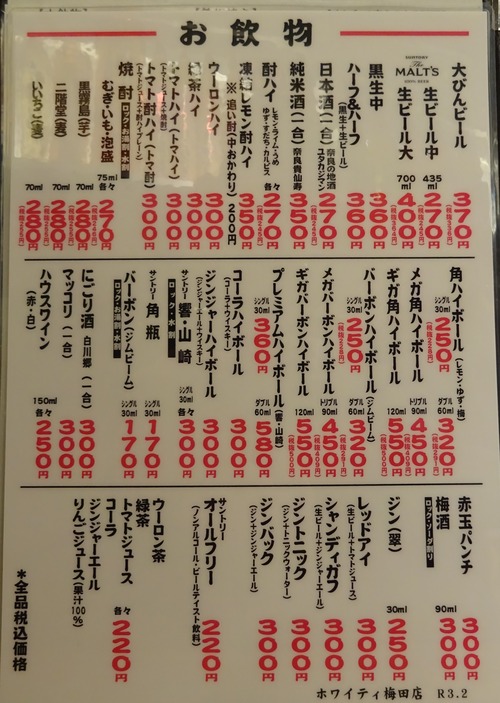 お飲物
大びんビール 370円
SUNTORY The MALT'S 生ビール中 435ml 270円 (税抜245円)
生ビール大 700ml 400円
黒生中 360円
ハーフ&ハーフ (黒生+生ビール) 360円
日本酒(一合) 奈良の地酒 270円 (税抜245円)
純米酒(一合) 奈良貴仙寿 350円
酎ハイ レモン・ライム・うめ ゆず・すだち・カルピス 各々 270円 (税抜245円)
凍結レモン酎ハイ 350円
※追い酎(中おかわり) 200円
ウーロンハイ 300円
緑茶ハイ 300円
トマトハイ(トマハイ) (トマトジュース+焼酎) 300円
トマト酎ハイ(トマ酎) (トマトジュース+酎ハイプレーン) 300円
焼酎 ロック・お湯割・水割
むぎ・いも・泡盛 75ml 各々 270円 (税抜245円)
黒霧島(芋) 70ml 280円 (税抜255円)
二階堂(麦) 70ml 280円 (税抜255円)
いいちこ(麦) 70ml 280円 (税抜255円)
角ハイボール (レモン・ゆず・梅) シングル 30ml 250円 (税抜228円) ダブル 60ml 320円 (税抜291円)
メガ角ハイボール トリプル 90ml 450円 (税抜409円)
ギガ角ハイボール 120ml 550円 (税抜500円)
バーボンハイボール (ジムビーム) シングル 30ml 250円 (税抜228円) ダブル 60ml 320円 (税抜291円)
メガバーボンハイボール トリプル 90ml 450円 (税抜409円)
ギガバーボンハイボール 120ml 550円 (税抜500円)
プレミアムハイボール (響・山崎) シングル 30ml 360円 ダブル 60ml 580円
コーラハイボール (コーラ+ウィスキー) 300円
ジンジャーハイボール (ジンジャーエール+ウィスキー) 300円
サントリー 響・山崎 ロック・水割 シングル 30ml 各々 300円
サントリー 角瓶 シングル 30ml 170円
バーボン(ジムビーム) ロック・お湯割・水割 シングル 30ml 170円
にごり酒 白川郷(一合) 300円
マッコリ(一合) 300円
ハウスワイン (赤・白) 150ml 各々 250円
赤玉パンチ 300円
梅酒 ロック・ソーダ割り 90ml 300円
ジン(翠) 30ml 250円
レッドアイ (生ビール+トマトジュース) 300円
シャンディガフ (生ビール+ジンジャーエール) 300円
ジントニック (ジン+トニックウォーター) 300円
ジンバック (ジン+ジンジャーエール) 300円
サントリー オールフリー (ノンアルコール・ビールテイスト飲料) 220円
ウーロン茶
緑茶
トマトジュース
コーラ
ジンジャーエール
りんごジュース(果汁100%)
各々 220円
*全品税込価格
ホワイティ梅田店 R3.2